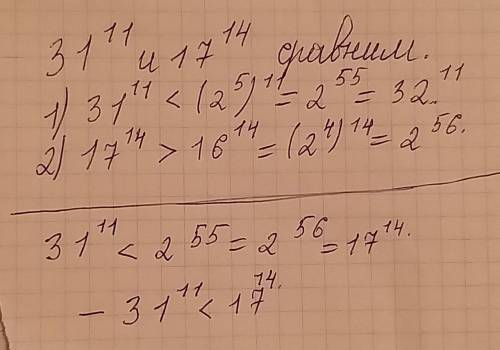 31¹¹ и 17¹⁴ сравним.
1) 31¹¹ < (2⁵)¹¹ = 2⁵⁵ = 32¹¹
2) 17¹⁴ > 16¹⁴ = (2⁴)¹⁴ = 2⁵⁶.
31¹¹ < 2⁵⁵ = 2⁵⁶ = 17¹⁴.
– 31¹¹ < 17¹⁴.